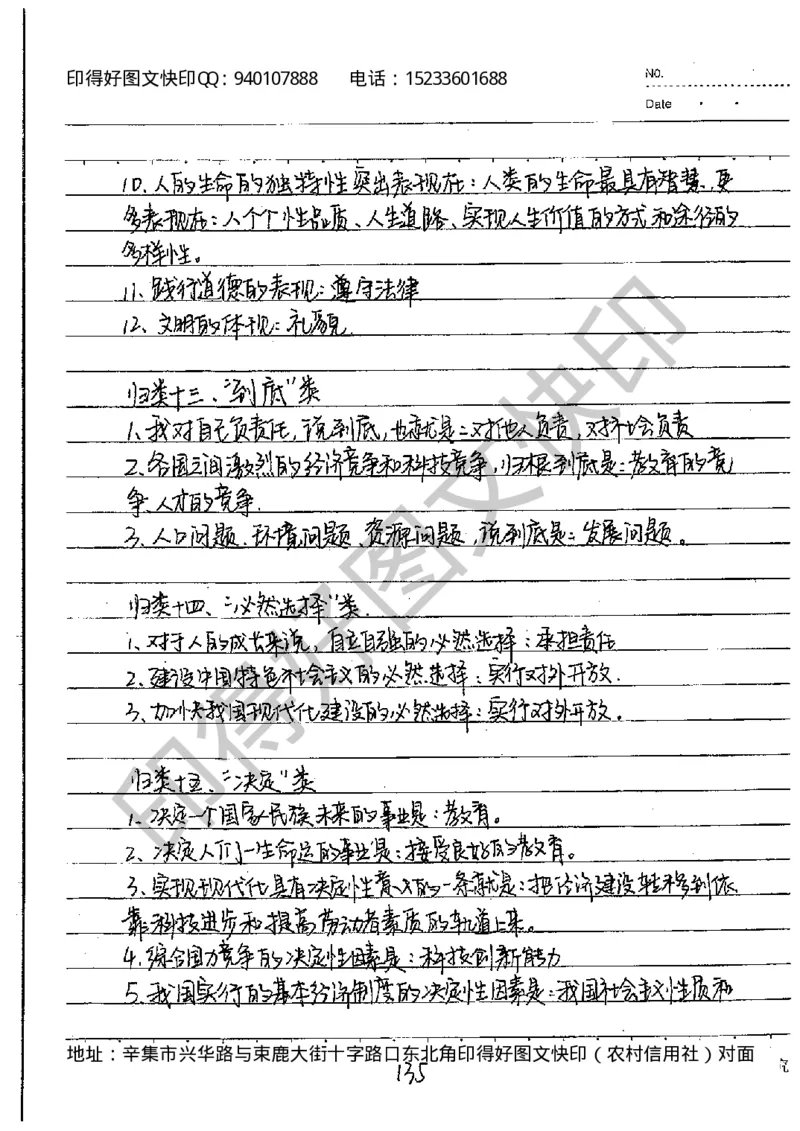 印得好图文快印QQ：940107888 电话：15233601688
NO.
Date
10、人的生命的独特性突出表现在：人类的生命最具有智慧、更
多表现在：人个个性品质、人生道路、实现人生价值的方式和途径的
多样性。
11、践行道德的表现：遵守法律
12、文明的体现：礼貌
归类十三、“到底”类
1、我对自己负责任，说到底，也就是：对他人负责，对社会负责
2、各国之间激烈的经济竞争和科技竞争，归根到底是：教育的竞
争、人才的竞争
3、人口问题、环境问题、资源问题，说到底是：发展问题。
归类十四、“必然选择”类
1、对于人的成长来说，自立自强的必然选择：承担责任
2、建设中国特色社会主义的必然选择：实行对外开放.
3、加快我国现代化建设的必然选择：实行对外开放。
归类十五、“决定”类
1、决定一个国家民族未来的事业是：教育。
2、决定人们一生命运的事业是：接受良好的教育。
3、实现现代化具有决定性意义的一条就是：把经济建设转移到依
靠科技进步和提高劳动者素质的轨道上来。
4、综合国力竞争的决定性因素是：科技创新能力
5、我国实行的基本经济制度的决定性因素是：我国社会主义性质和
地址：辛集市兴华路与束鹿大街十字路口东北角印得好图文快印（农村信用社）对面
135
印得好图文快印